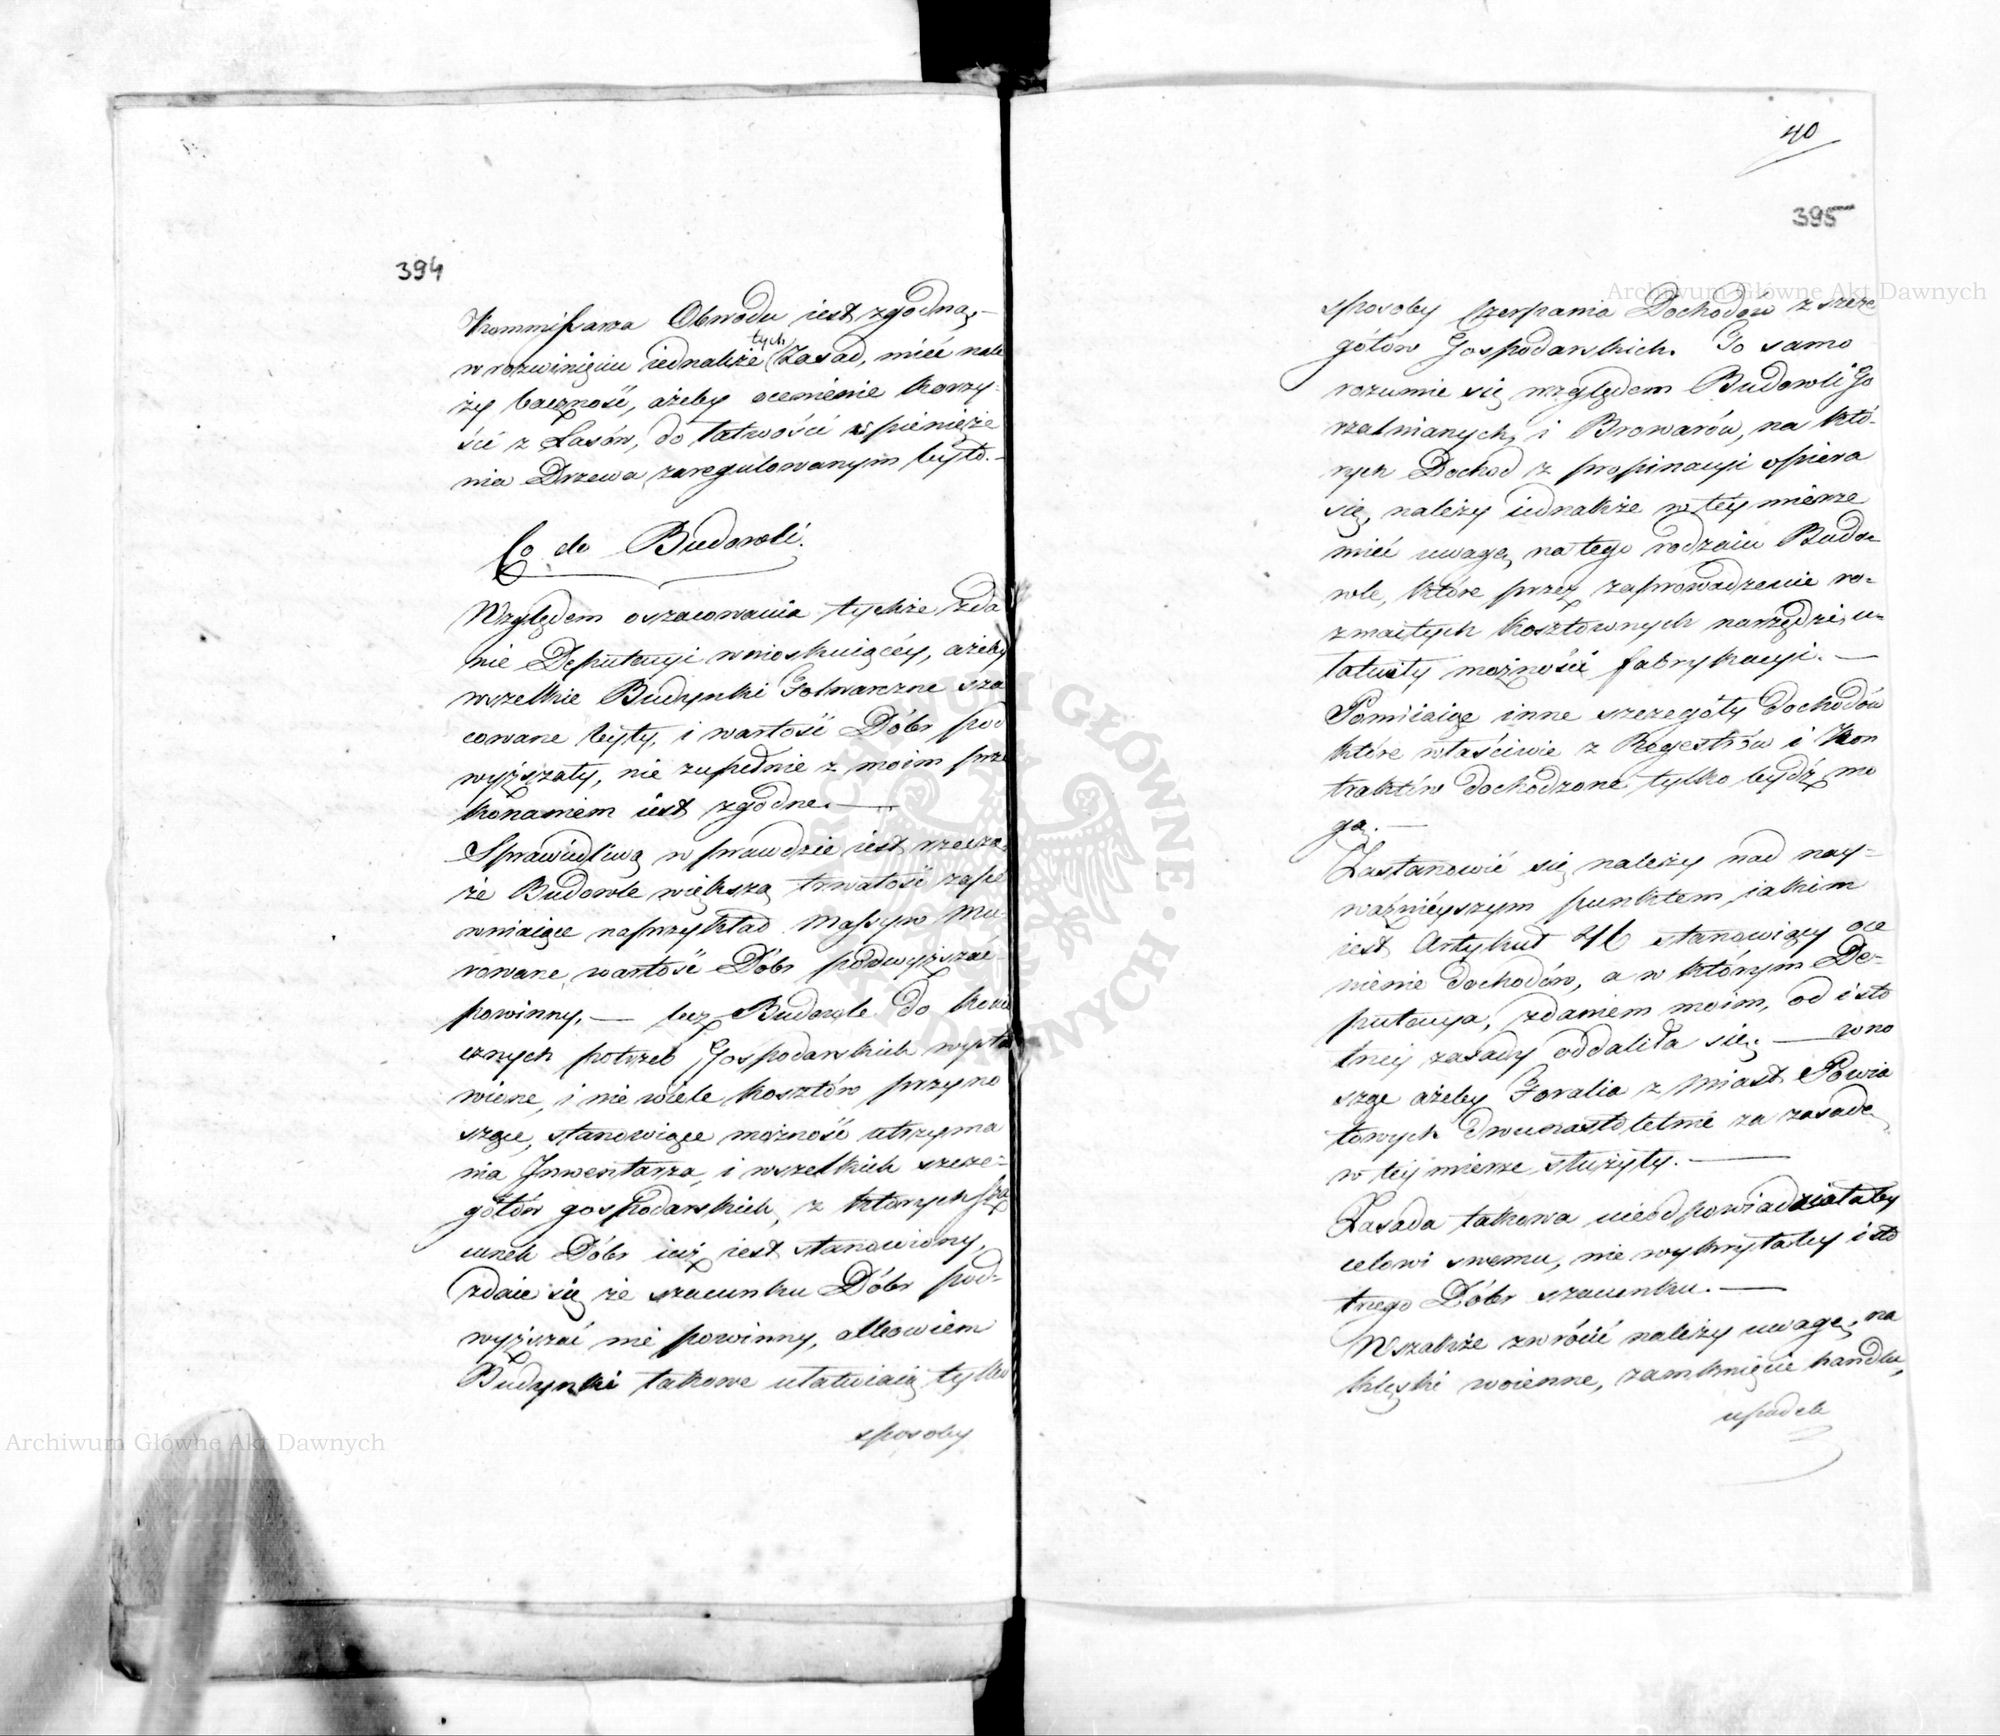 394
Kommissarza Obwodu iest zgodną,
w rozwinięciu iednakże tych Zasad, mieć nale
ży baczność, ażeby ocenienie korzy-
ści z Lasów, do łatwości spienięże
nia Drzewa, zaregulowanym było.—
Co do Budowli.
Względem oszacowania tychże zda
nie Deputacyi wnioskuiącéy, ażeby
wszelkie Budynki Folwarczne sza
cowane były, i wartość Dóbr pod
wyższały, nie zupełnie z moim prze
konaniem iest zgodne.—
Sprawiedliwą w prawdzie iest rzeczą,
że Budowle większą trwałość zape
wniaiące naprzykład Massyw Mu-
rowane, wartość Dóbr podwyższać
powinny,— lecz Budowle do konie
cznych potrzeb Gospodarskich wysta
wione, i nie wiele kosztów przyno
szące, stanowiące możność utrzyma
nia Inwentarza, i wszelkich szcze-
gółów gospodarskich, z których sza
cunek Dóbr iuż iest stanowiony,
zdaie się że szacunku Dóbr pod-
wyższać nie powinny, albowiem
Budynki takowe ułatwiaią tylko
sposoby
40
395
sposoby Czerpania Dochodów z szcze
gółów Gospodarskich. To samo
rozumie się względem Budowli Go
rzalnianych, i Browarów, na któ-
rych Dochod z propinacyi opiera
się, należy iednakże w tey mierze
mieć uwagę, na tego rodzaiu Budo-
wle, które przez zaprowadzenie ro-
zmaitych kosztownych narzędzi, u-
łatwiły możności fabrykacyi.—
Pomiiaiąc inne szczegóły dochodów
które właściwie z Regestrów i Kon
traktów dochodzone tylko bydź mo
gą.—
Zastanowić się należy nad nay-
ważnieyszym punktem, iakim
iest Artykuł stanowiący oce
nienie dochodów, a w którym De-
putacya, zdaniem moim, od isto
tnéj zasady oddaliła się,— wno
sząc ażeby Foralia z Miast Powia
towych dwunastoletnie za zasadę
w téj mierze służyły.—
Zasada takowa nieodpowiadziałaby
celowi swemu, nie wykryłaby isto
tnego Dóbr szacunku.—
Wszakże zwrócić należy uwagę, na
klęski woienne, zamknięcie handlu,
upadek